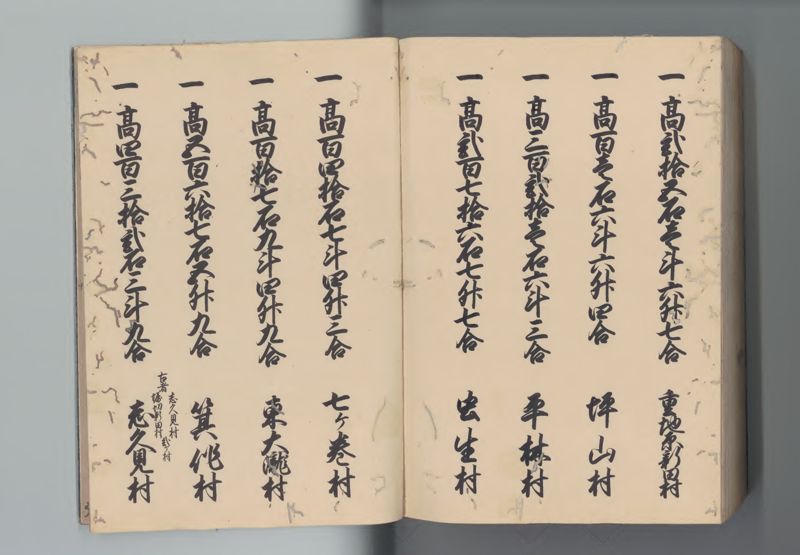 一 高弐拾五石壱斗六升七合 重地原新田村
一 高百壱石六斗六升四合 坪山村
一 高三百弐拾壱石六斗三合 平林村
一 高弐百七拾六石七升七合 虫生村
一 高百四拾石七斗四升三合 七ケ巻村
一 高百拾七石九斗四升九合 東大瀧村
一 高五百六拾七石五升九合 箕作村
古者 志久見村
堀切新田村 弐ケ村
一 高四百三拾弐石三斗九合 志久見村